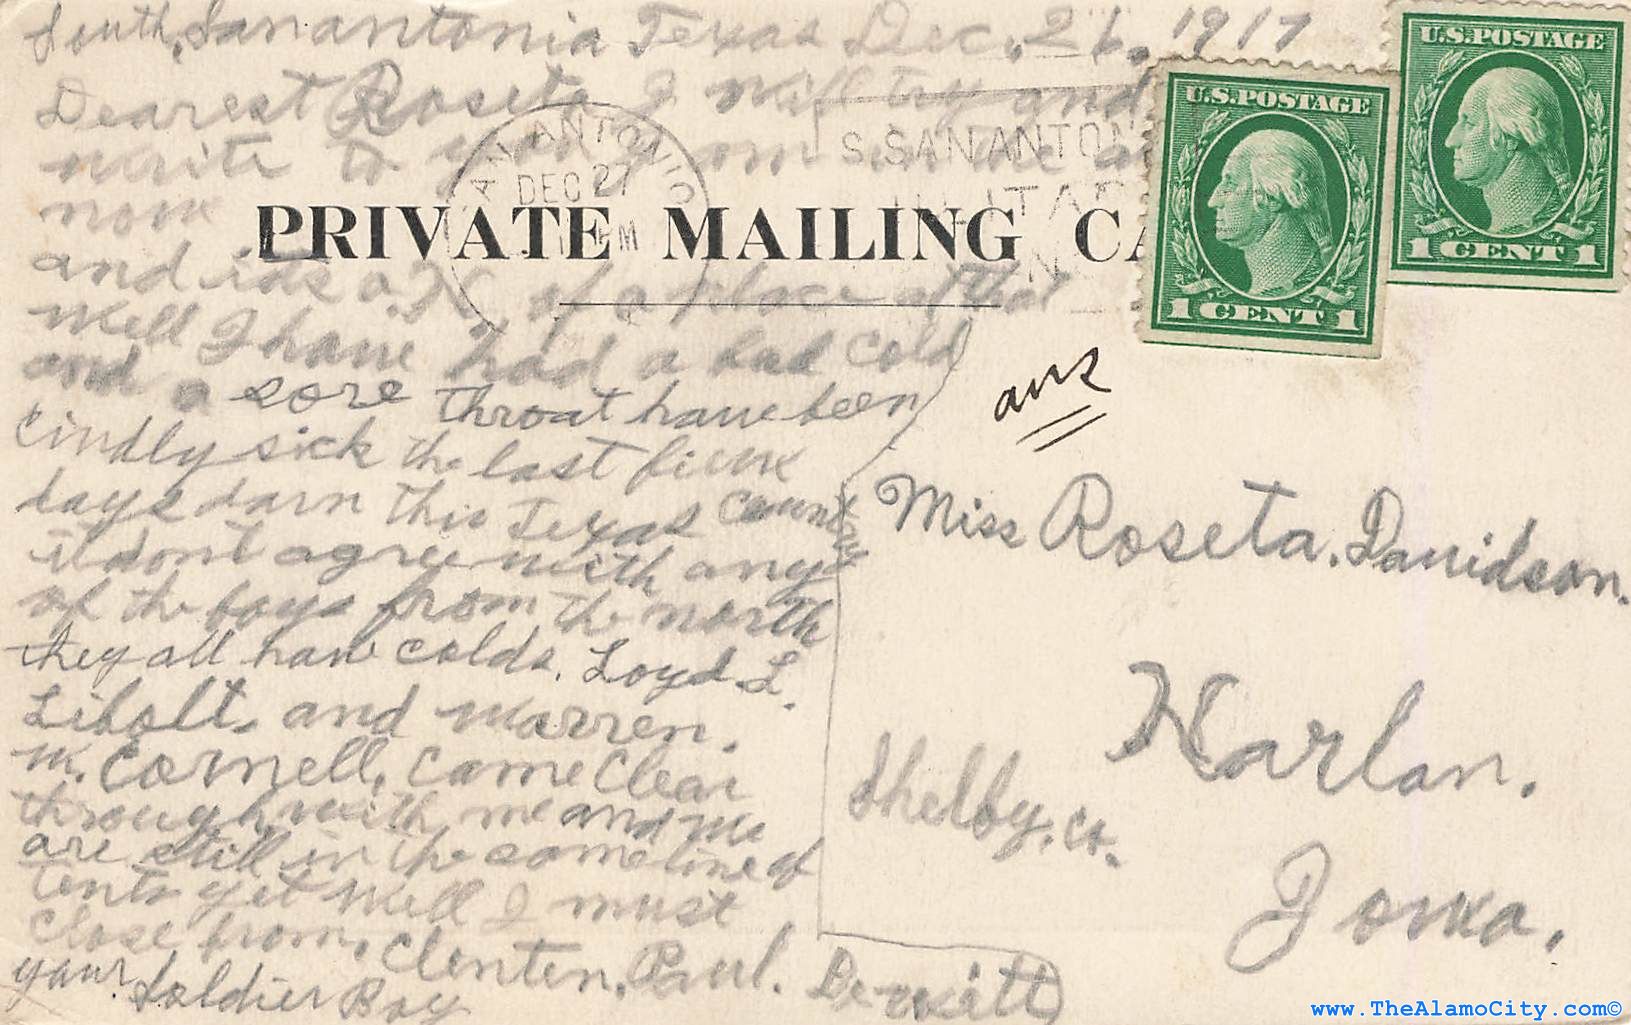 South, Sanantonia Texas Dec. 26. 1917
Dearest Roseta I will try and
write to you
now
and its a H of a place at that
Well I have had a bad cold
and a sore throat have been
cindly sick the last fiew
days darn this Texas country
it dont agree with any
of the boys from the north
they all have colds. Loyd L.
Libolt. and Warren.
M. Cornell. came clear
through with me and we
are still in the same line of
tents yet Well I must
close from. Clenten. Paul. Dewitt
your Soldier Boy
PRIVATE MAILING CA
SAN ANTONIO
DEC 27
PM
S. SAN ANTON
U.S. POSTAGE
1 CENT 1
U.S. POSTAGE
1 CENT 1
ans
Miss Roseta. Davidson.
Harlan.
Shelby. co.
Iowa.
www.TheAlamoCity.com©